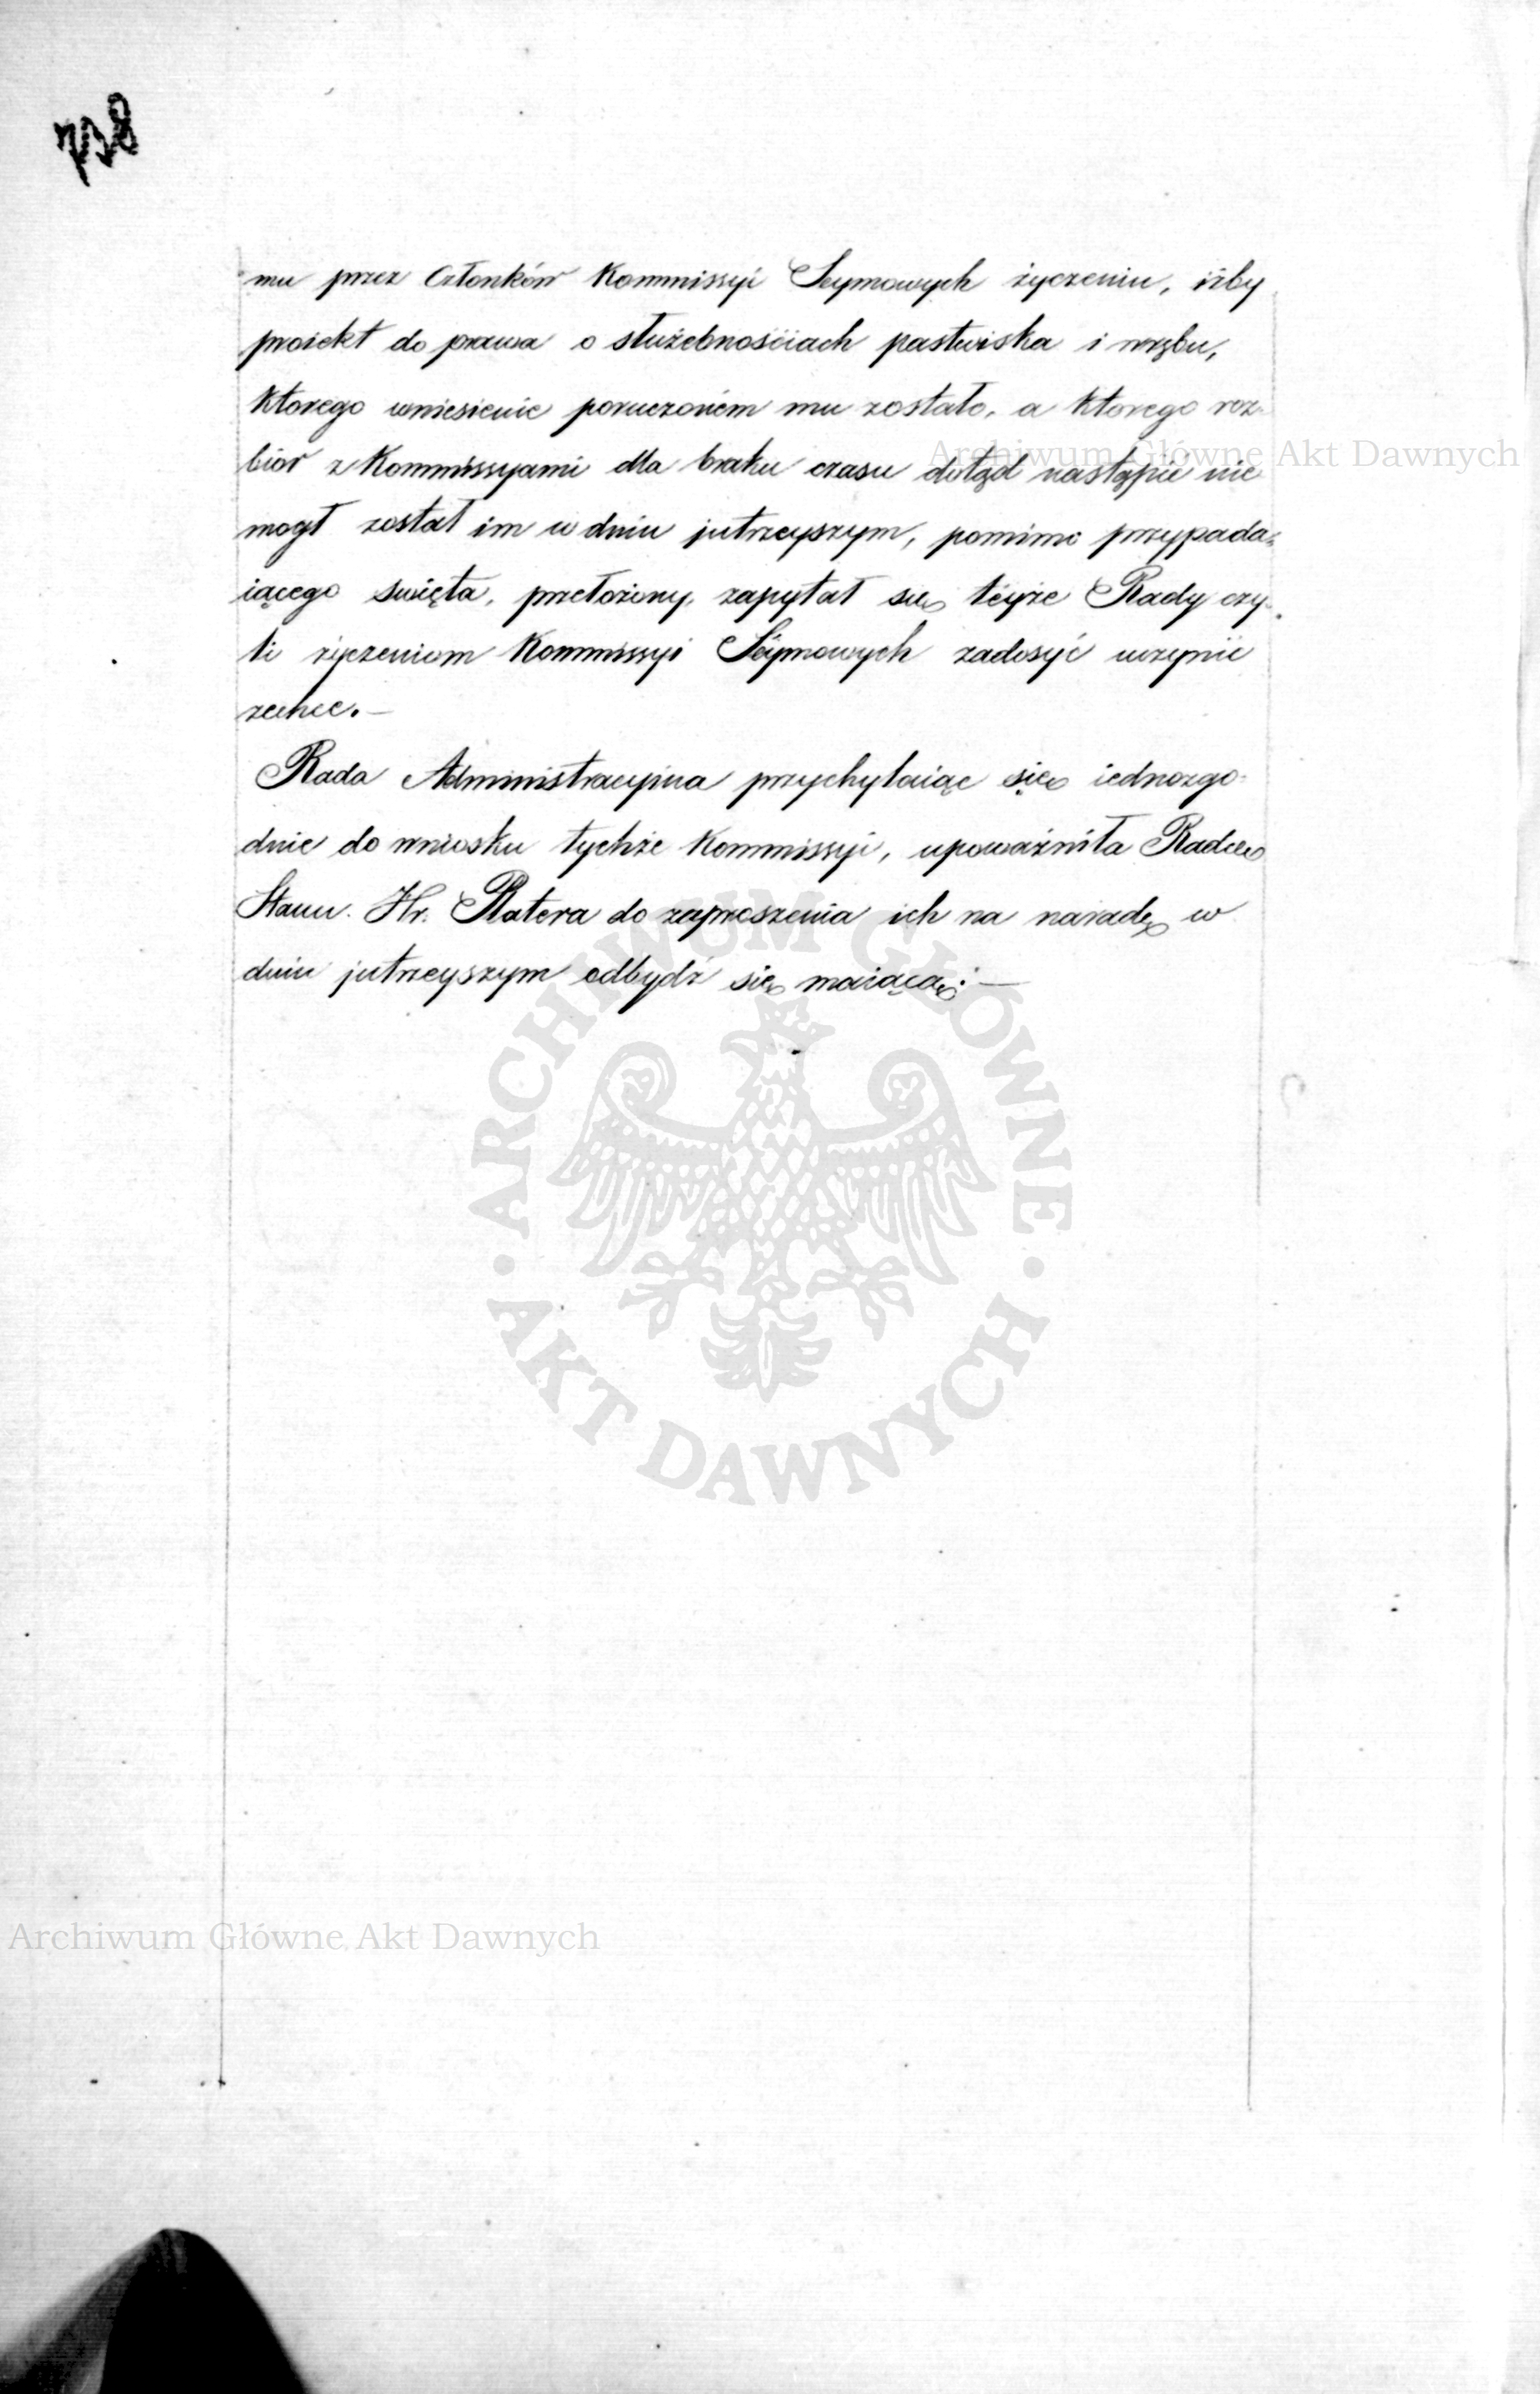 738
mu przez Członków Kommissyi Seymowych życzeniu, iżby
proiekt do prawa o służebnościach pastwiska i wrębu,
którego wniesienie poruczonem mu zostało, a którego roz-
biór z Kommissyami dla braku czasu dotąd nastąpić nie
Archiwum Główne Akt Dawnych
mogł został im w dniu jutrzeyszym, pomimo przypada-
iącego swięta, przełożony, zapytał się teyże Rady czy-
li życzeniom Kommissyi Seymowych zadosyć uczynić
zechce.—
Rada Administracyina przychylaiąc się iednozgo-
dnie do wniosku tychże Kommissyi, upoważniła Radcę
Stanu Hr. Platera do zaproszenia ich na naradę w
dniu jutrzeyszym odbydź się maiącą.—
ARCHIWUM GŁÓWNE
AKT DAWNYCH
Archiwum Główne Akt Dawnych